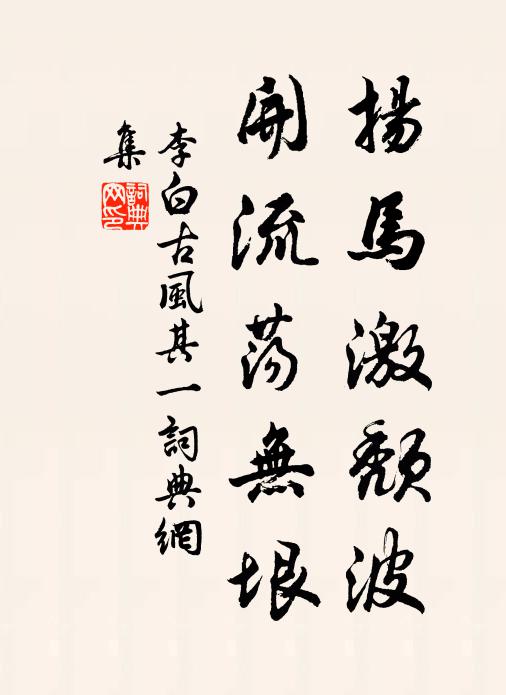 揚馬激頹波
開流蕩無垠
李白古風其一詞典網
集
詞典網印